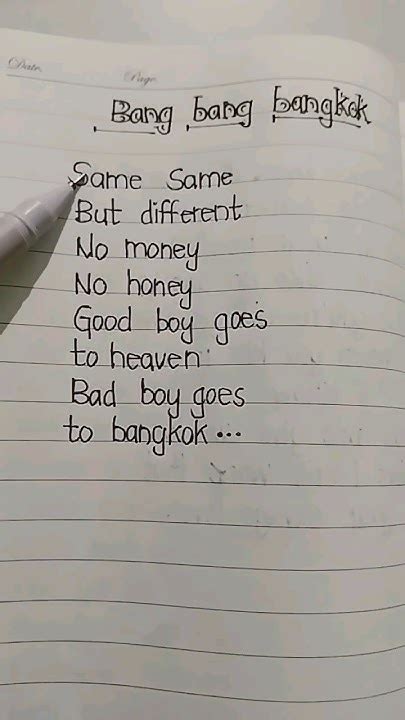 Date
Page
Bang bang bangkok
Same Same
But different
No money
No honey
Good boy goes
to heaven
Bad boy goes
to bangkok...